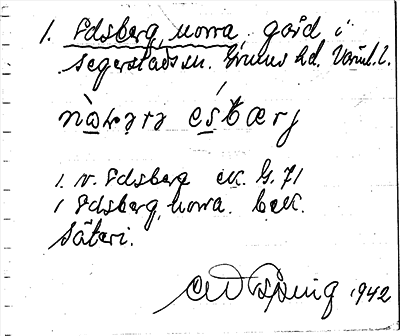 1. Edsberg, norra, gård i
Segerstads sn. Grums hd. Värml. l.
nàrərə ésbærj
1. v. Edsberg ek. G. 71
1 Edsberg, norra. bek.
Säteri.
1942